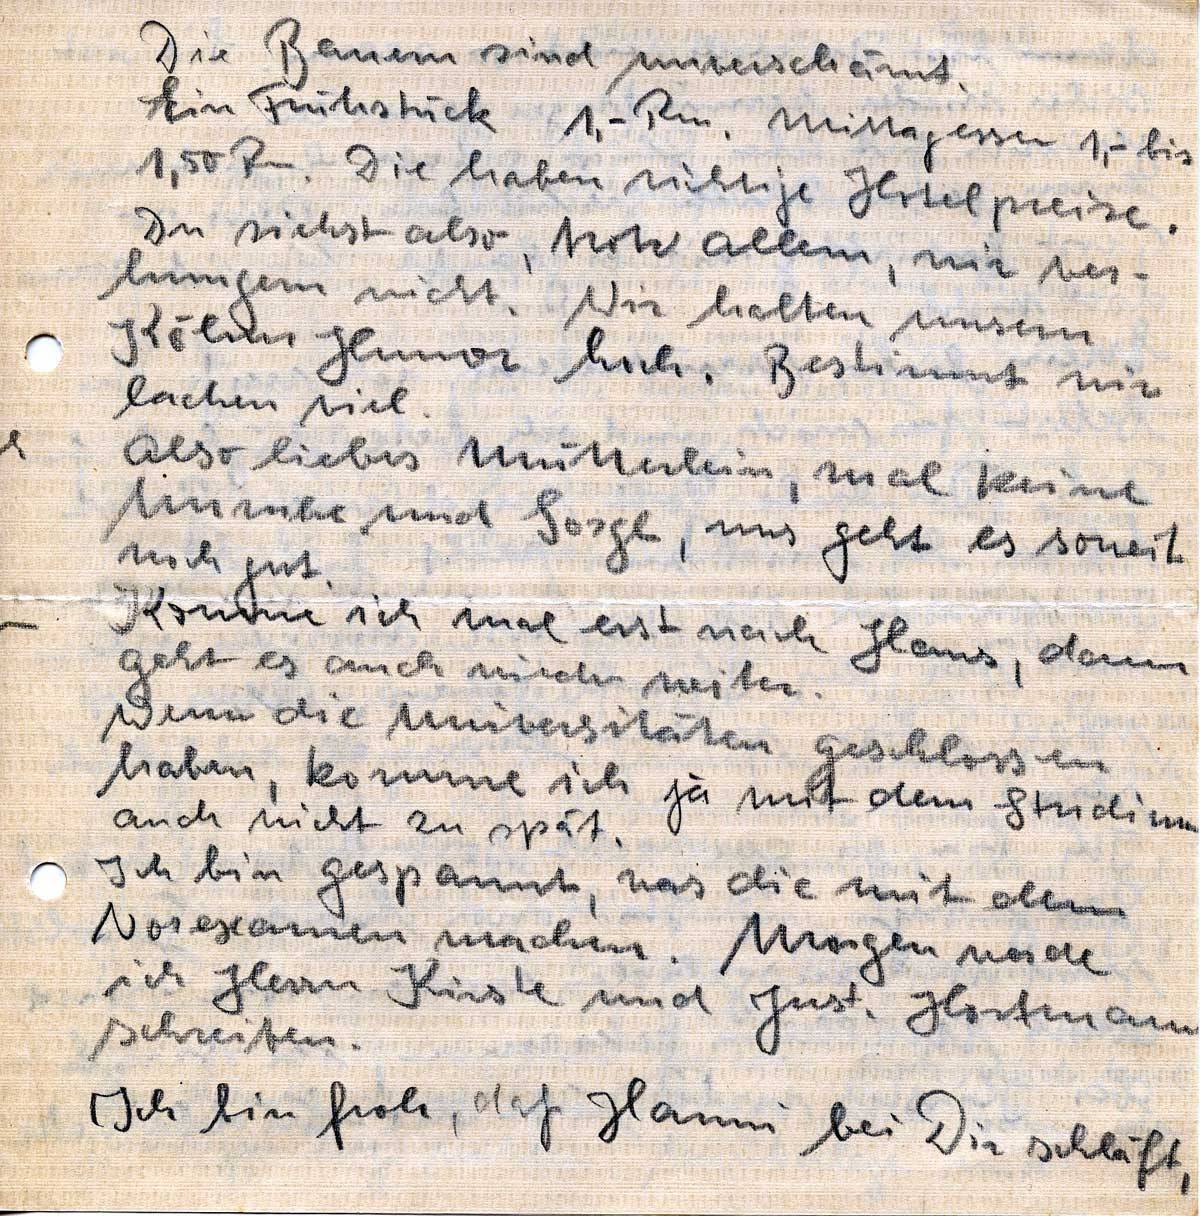 Die Bauern sind unverschämt.
Ein Frühstück 1,- Rm. Mittagessen 1,- bis
1,50 Rm. Die haben richtige Hotelpreise.
Du siehst also, trotz allem, wir ver-
hungern nicht. Wir halten unsern
Kölner Humor hoch. Bestimmt wir
lachen viel.
Also liebes Mütterlein, mal keine
Unruhe und Sorge, uns geht es soweit
noch gut.
Komme ich mal erst nach Haus, dann
geht es auch wieder weiter.
Wenn die Universitäten geschlossen
haben, komme ich ja mit dem Studium
auch nicht zu spät.
Ich bin gespannt, was die mit dem
Vorexamen machen. Morgen werde
ich Herrn und Just. Hortmann
schreiben.
Ich bin froh, daß Hanni bei Dir schläft,